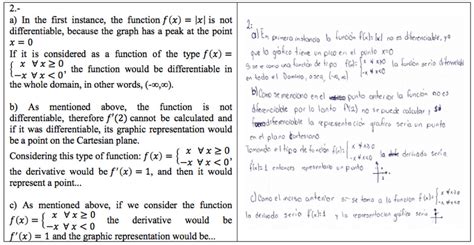 2.-
a) In the first instance, the function f(x) = |x| is not
differentiable, because the graph has a peak at the point
x = 0
If it is considered as a function of the type f(x) =
{ x ∀ x ≥ 0
−x ∀ x < 0 , the function would be differentiable in
the whole domain, in other words, (-∞,∞).
b) As mentioned above, the function is not
differentiable, therefore f'(2) cannot be calculated and
if it was differentiable, its graphic representation would
be a point on the Cartesian plane.
Considering this type of function: f(x) = { x ∀ x ≥ 0
−x ∀ x < 0 ,
the derivative would be f'(x) = 1, and then it would
represent a point...
c) As mentioned above, if we consider the function
f(x) = { x ∀ x ≥ 0
−x ∀ x < 0 the derivative would be
f'(x) = 1 and the graphic representation would be...
2:
a) En primera instancia la función f(x)=|x| no es diferenciable, ya
que la gráfica tiene un pico en el punto x=0
Si se toma como una función de tipo f(x)= { x ∀ x≥0
-x ∀ x<0 la función sería diferenciable
en todo el Dominio, osea, (-∞, ∞)
b) Como se menciono en el punto anterior la función no es
diferenciable por lo tanto f'(2) no se puede calcular y
diferenciable la representación gráfica sería un punto
en el plano cartesiano
Tomando el tipo de función f(x)= { x ∀ x≥0
-x ∀ x<0 la derivada sería
f'(x)=1 entonces representaría un punto
c) Como el inciso anterior si se toma a la función f(x) { x ∀ x≥0
-x ∀ x<0
la derivada sería f'(x)=1 y la representación gráfica sería